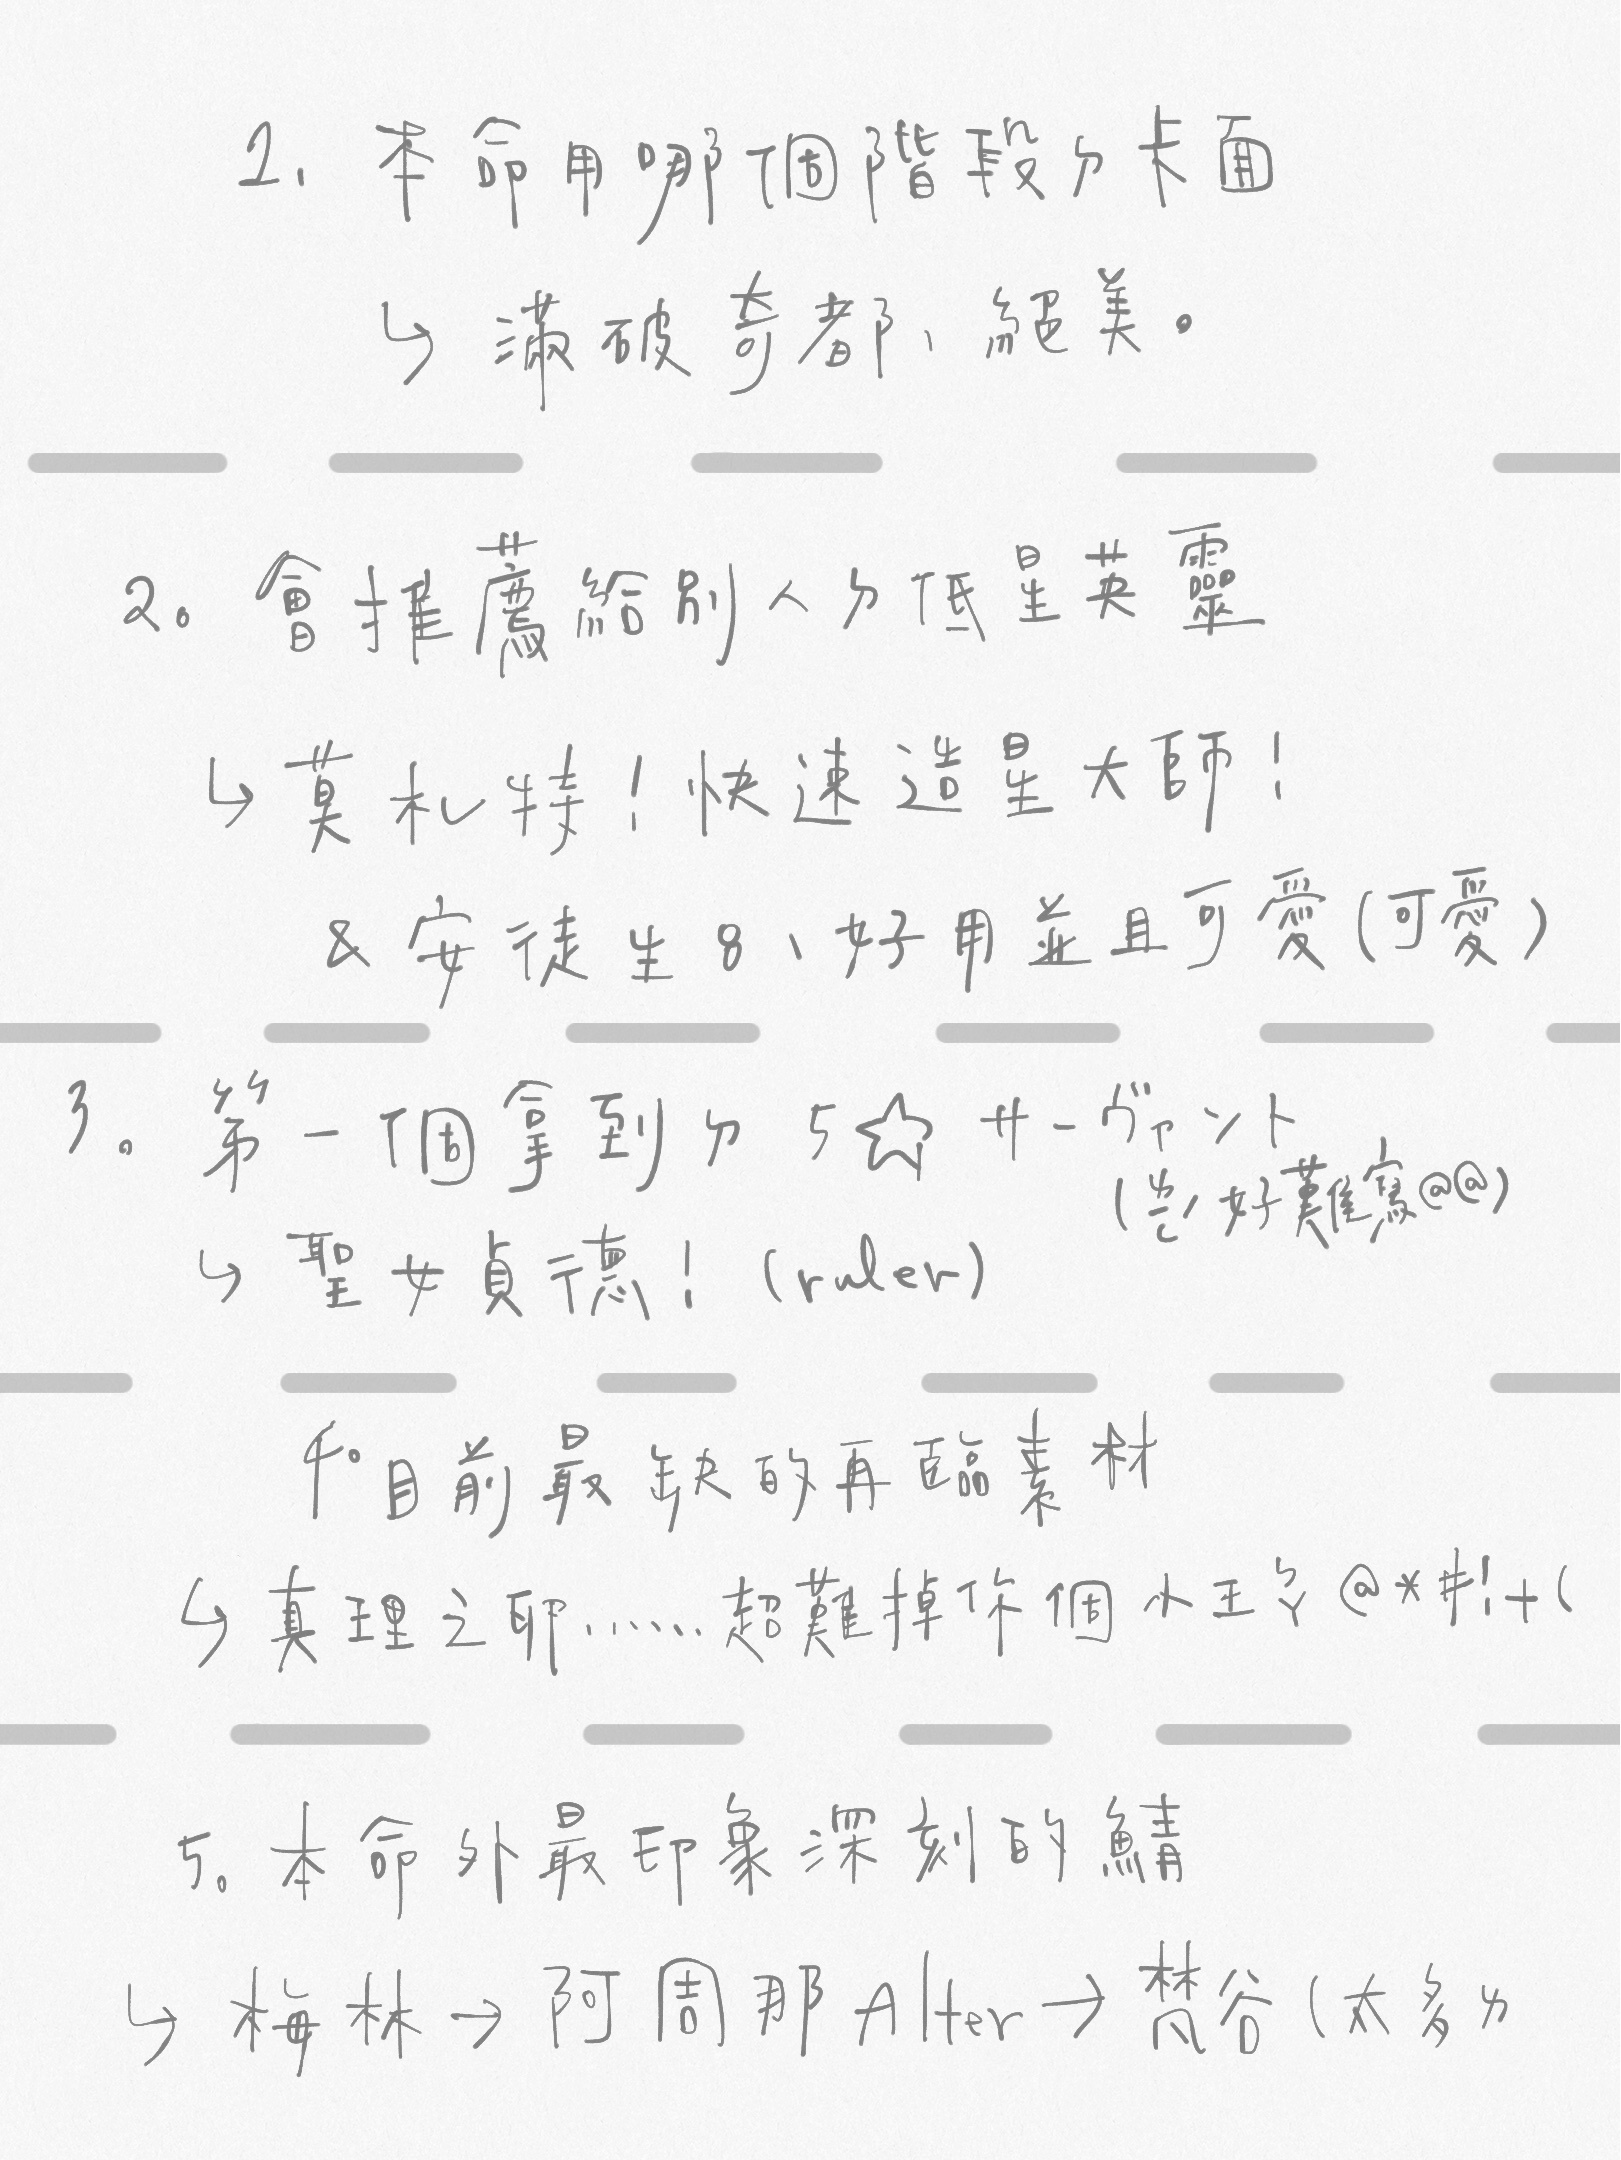 1. 本命用哪個階段ㄉ卡面
↳ 滿破奇都、絕美。
2。會推薦給別人ㄉ低星英靈
↳ 莫札特！快速造星大師！
& 安徒生8、好用並且可愛(可愛)
3。第一個拿到ㄉ 5☆ サーヴァント
(岂、好難寫@@)
↳ 聖女貞德！(ruler)
4。目前最缺的再臨素材
↳ 真理之卵……超難掉你個小王ㄚ@*#!+(
5。本命外最印象深刻的鯖
↳ 梅林→阿周那Alter→梵谷(太多ㄌ